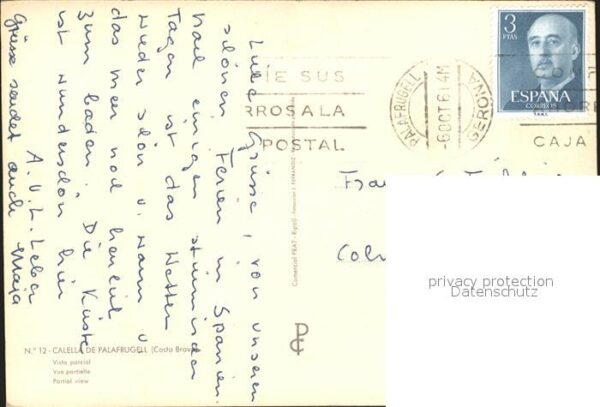 Liebe Grüsse, von unseren
schönen Ferien in Spanien.
Nach einigen stürmischen
Tagen ist das Wetter
wieder schön u. warm u.
das Meer noch herrlich
zum baden. Die Küste
ist wunderschön hier
A. u. L. Leber
Grüsse sendet auch Maja
3
PTAS
ESPAÑA
CORREOS
PALAFRUGELL
-6 OCT 61 4M
GERONA
E SUS
RROS A LA
POSTAL
CAJA
Comercial PRAT - Ripoll
privacy protection
Datenschutz
N.º 12 - CALELLA DE PALAFRUGELL (Costa Brava)
Vista parcial
Vue partielle
Partial view